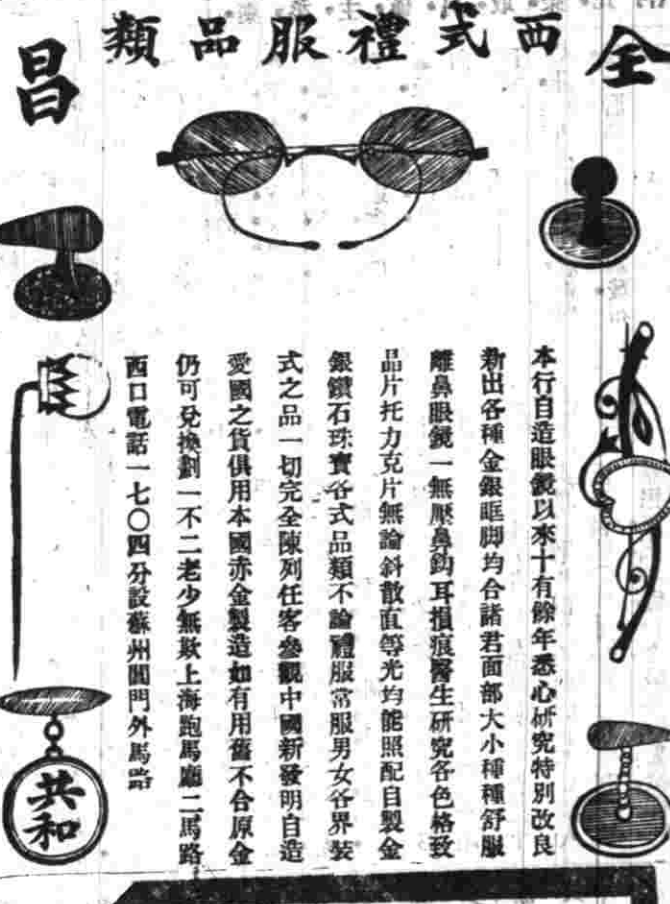 全
西式禮服品類
昌
本行自造眼鏡以來十有餘年悉心研究特別改良
新出各種金銀眶脚均合諸君面部大小種種舒服
離鼻眼鏡一無壓鼻鈎耳損痕醫生研究各色格致
品片托力克片無論斜散直等光均能照配自製金
銀鑽石珠寶各式品類不論禮服常服男女各界裝
式之品一切完全陳列任客參觀中國新發明自造
愛國之貨俱用本國赤金製造如有用舊不合原金
仍可兌換劃一不二老少無欺上海跑馬廳二馬路
西口電話一七〇四分設蘇州閶門外馬路
共和